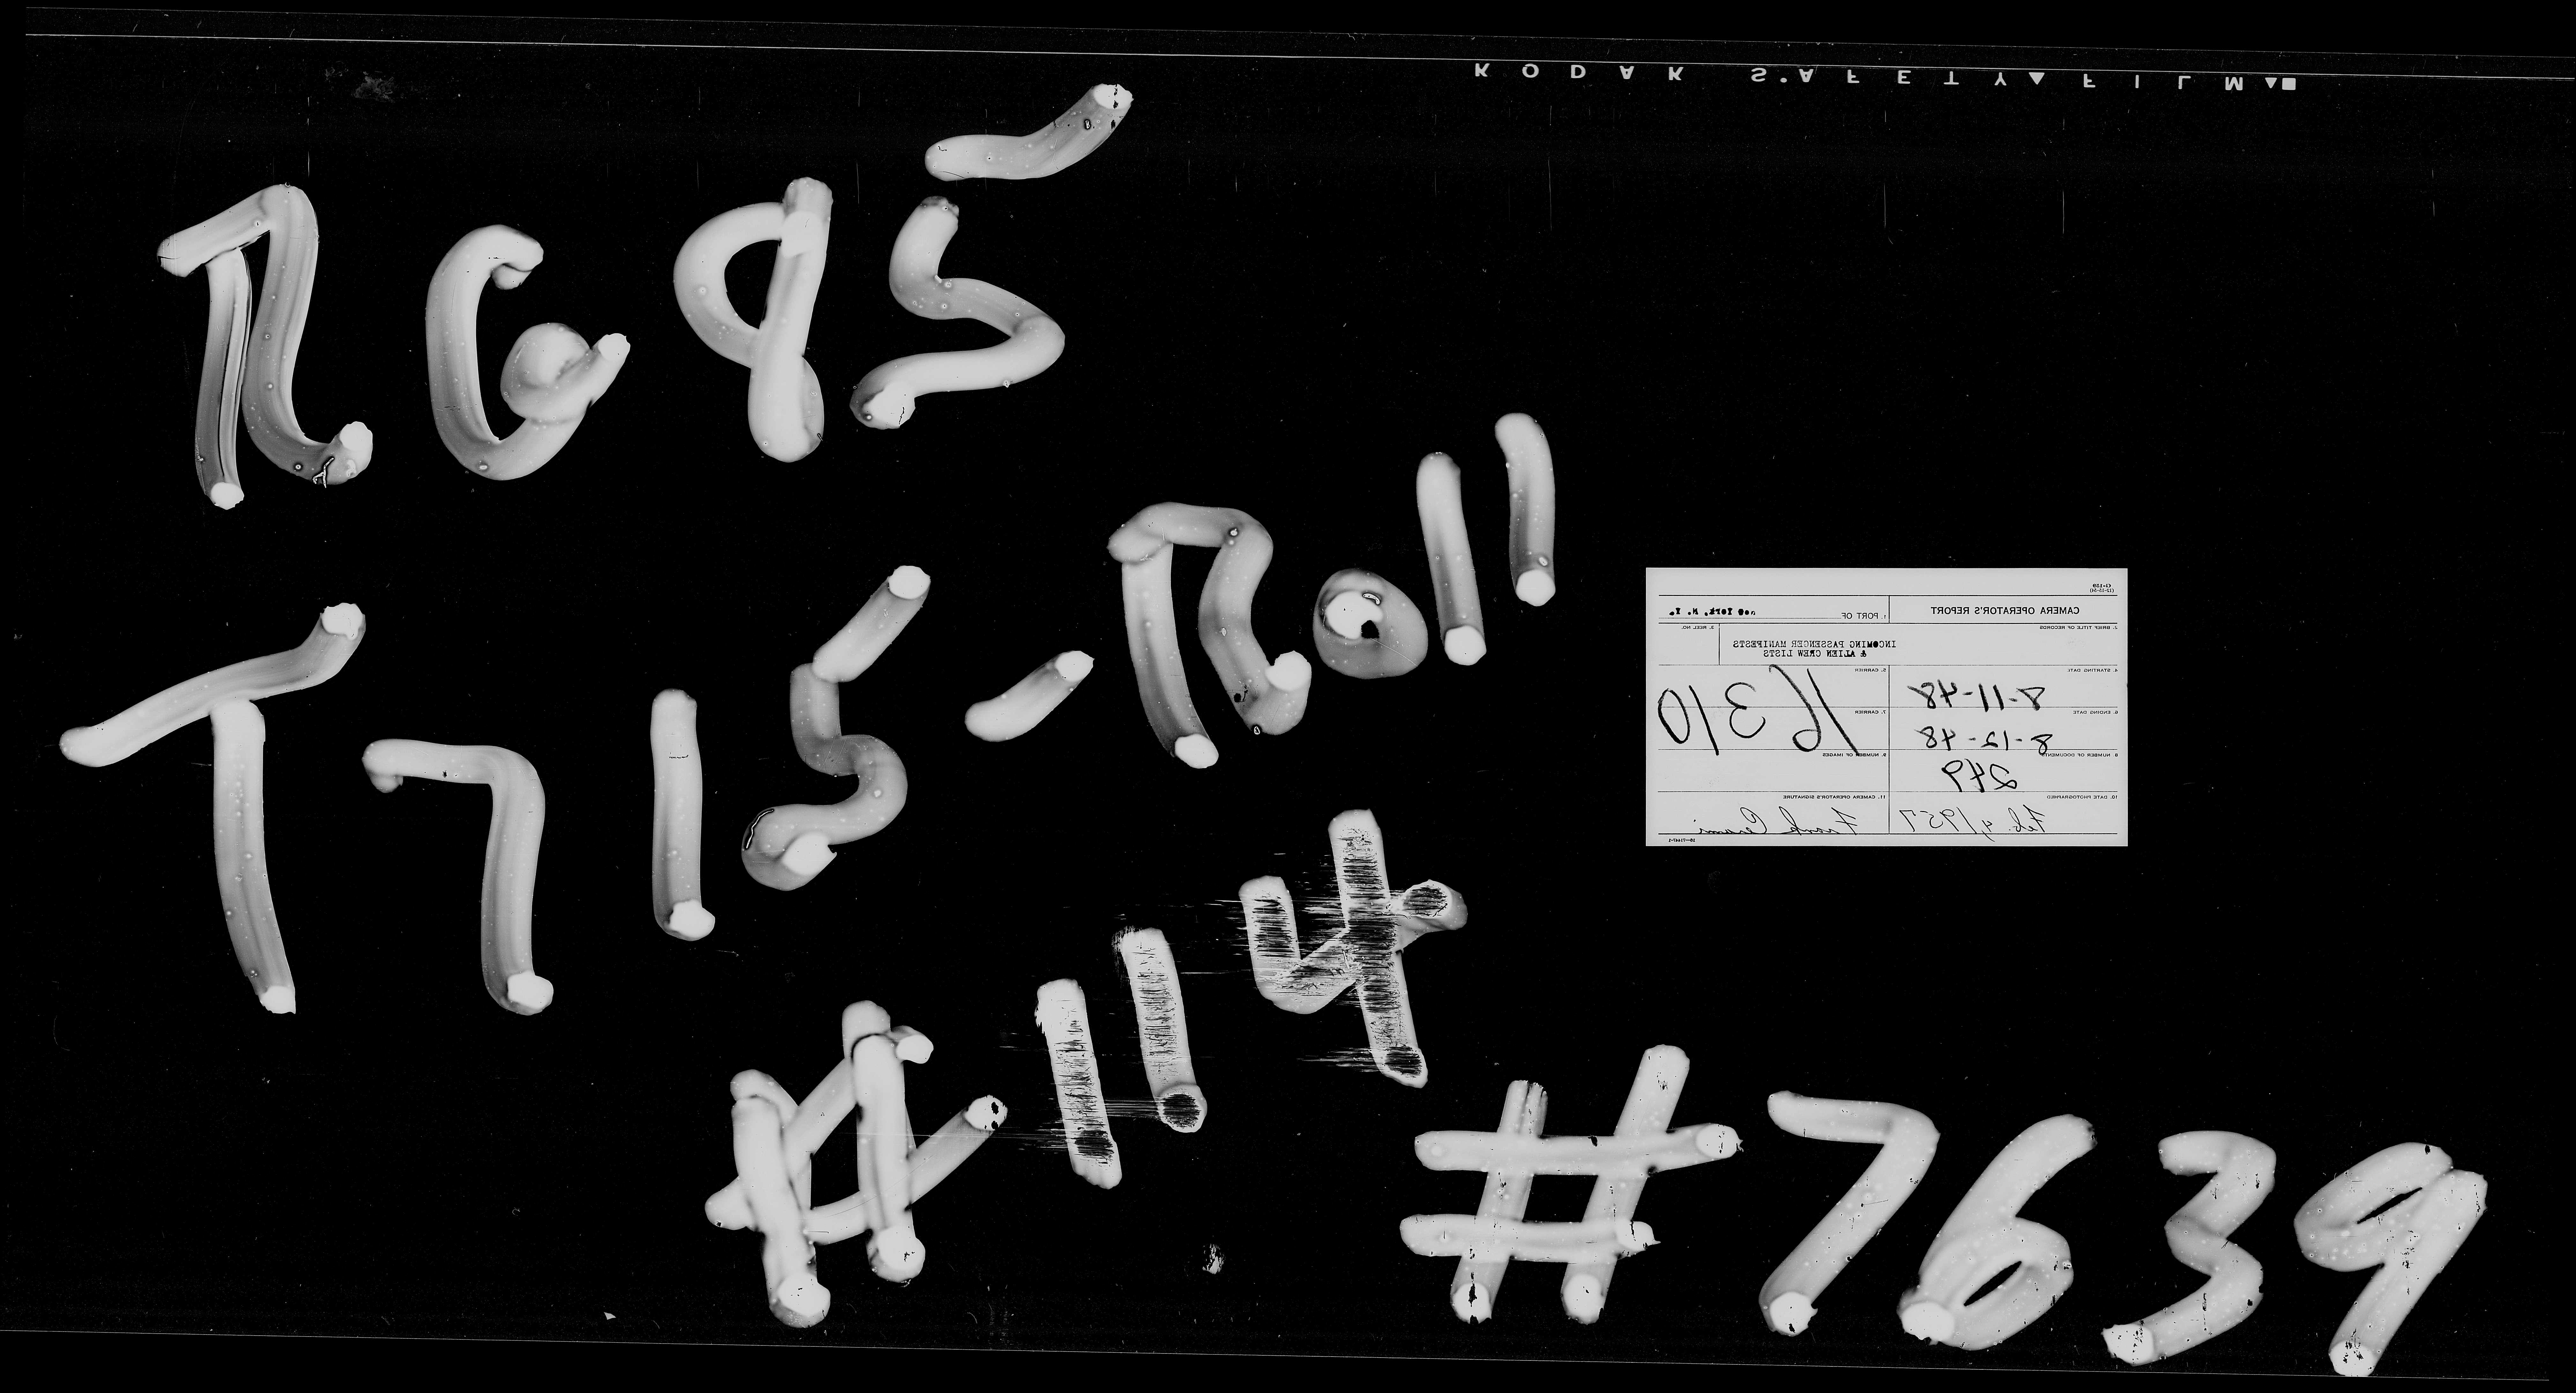 KODAK SAFETY FILM
RG 85
T715-Roll
#114
#7639
G-159
CAMERA OPERATOR'S REPORT
1. PORT OF New York, N. Y.
2. BRIEF TITLE OF RECORDS
INCOMING PASSENGER MANIFESTS
& ALIEN CREW LISTS
3. REEL NO.
4. STARTING DATE
8-11-48
5. CARRIER
16310
6. ENDING DATE
8-12-48
7. CARRIER
8. NUMBER OF DOCUMENTS
249
9. NUMBER OF IMAGES
10. DATE PHOTOGRAPHED
Feb. 4, 1957
11. CAMERA OPERATOR'S SIGNATURE
Frank